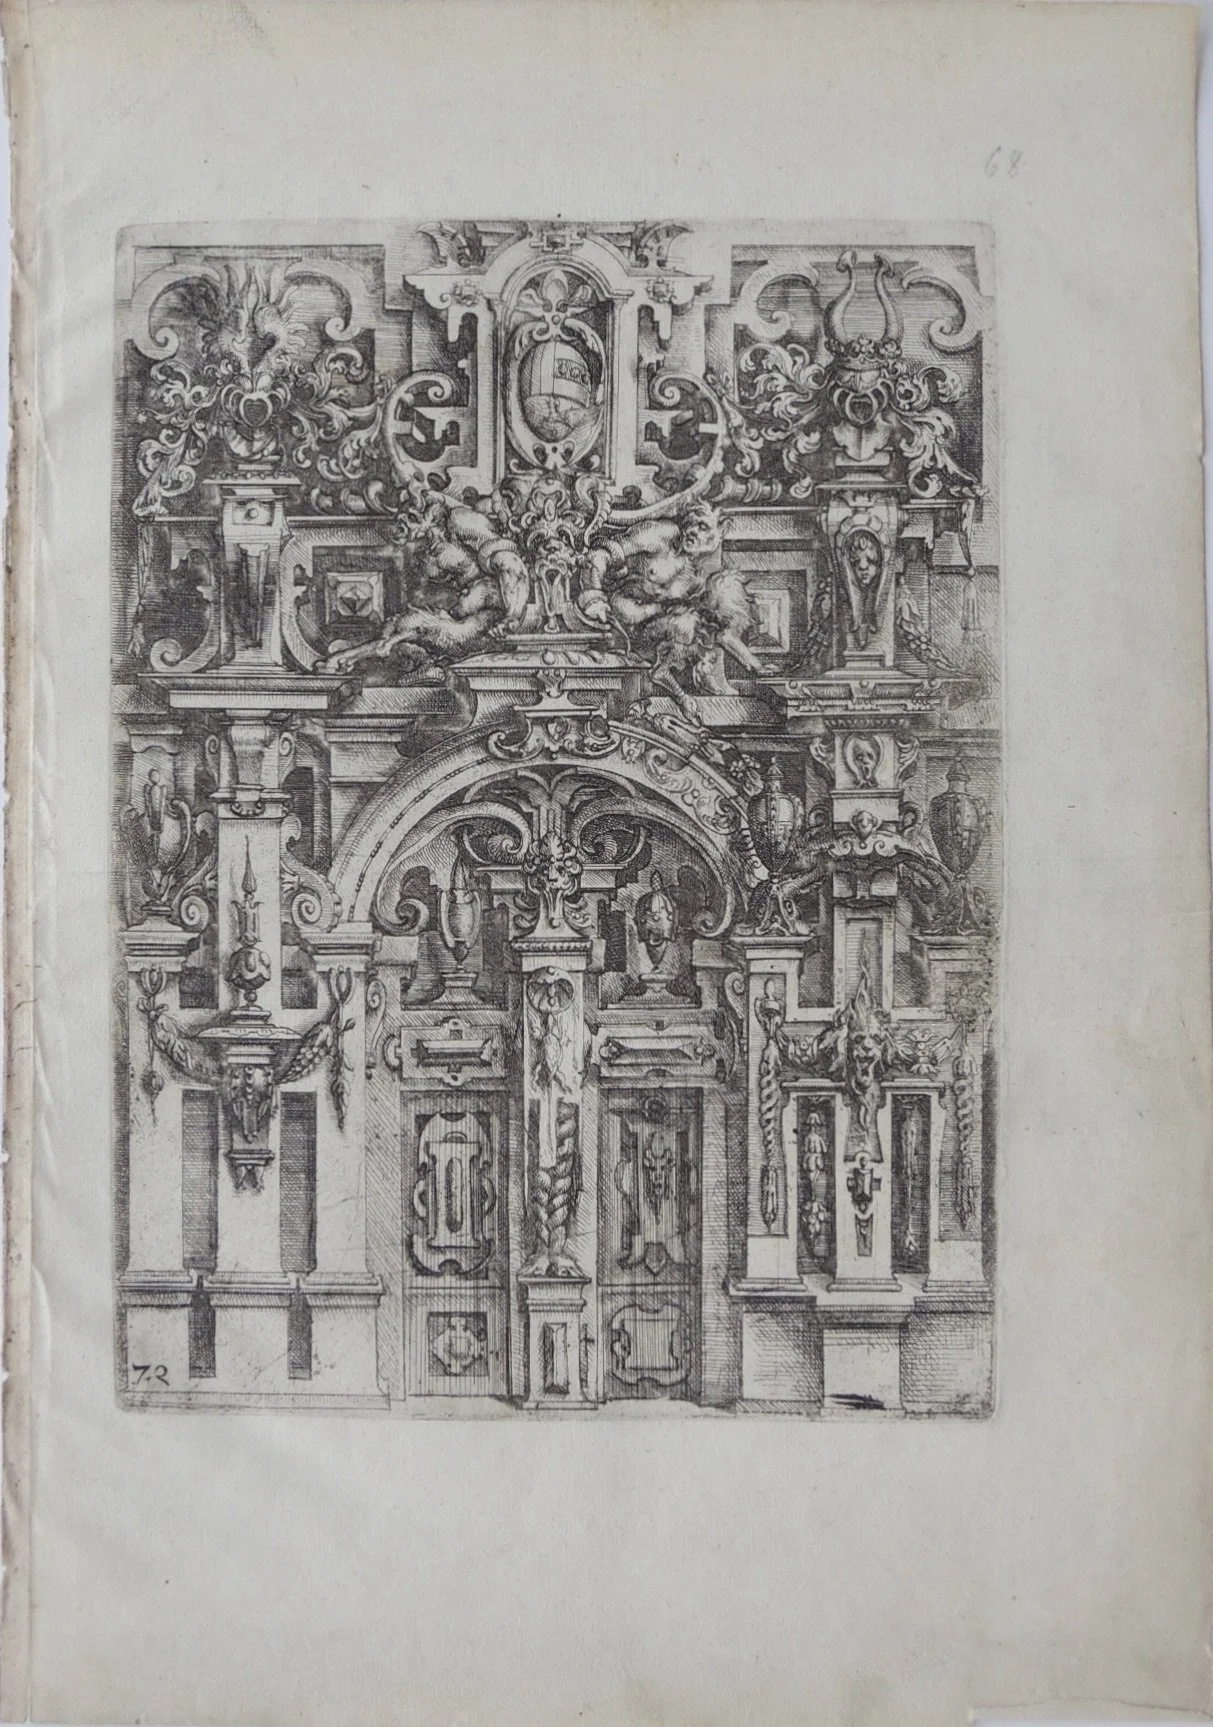 68
72